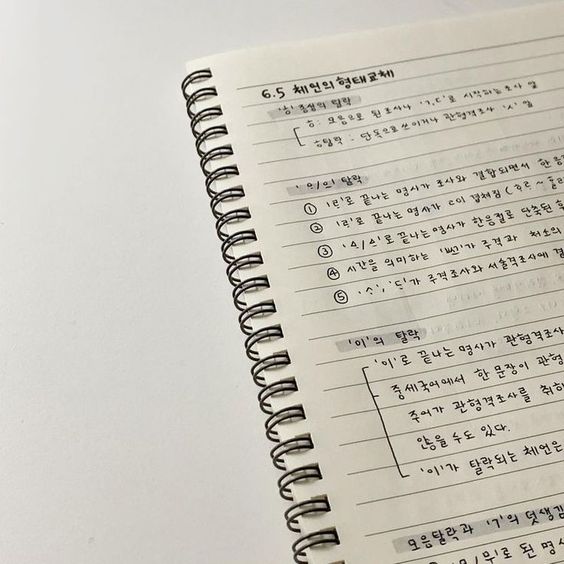 6.5 체언의 형태교체
'ㅎ' 종성의 탈락
ㅎ : 모음으로 된 조사나 'ㄱ,ㄷ'로 시작하는 조사 앞
ㅎ탈락 : 단독으로 쓰이거나 관형격조사 'ㅅ' 앞
탈락
① 로 끝나는 명사가 조사와 결합되면서 한 음절
② 로 끝나는 명사가
③ 로 끝나는 명사가 한음절로 단축된
④ 시간을 의미하는 가 주격과 처소의
⑤ 가 주격조사와 서술격조사에
'이'의 탈락
'이'로 끝나는 명사가 관형격조사
중세국어에서 한 문장이 관형
주어가 관형격조사를 취하
않을 수도 있다.
'이'가 탈락되는 체언은
모음탈락과 'ㄱ'의 덧생김
로 된 명사